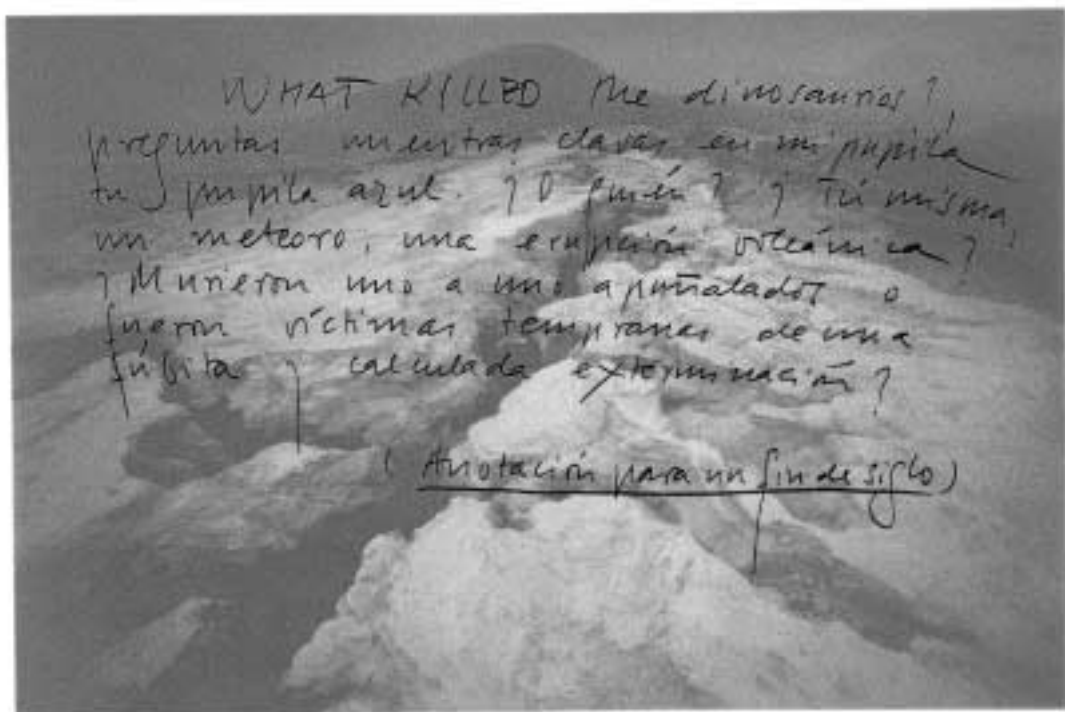 WHAT KILLED the dinosaurios?,
preguntas mientras clavas en mi pupila
tu pupila azul. ¿O quién? ¿Tú misma,
un meteoro, una erupción volcánica?
¿Murieron uno a uno apuñalados o
fueron víctimas tempranas de una
súbita y calculada exterminación?
(Anotación para un fin de siglo)